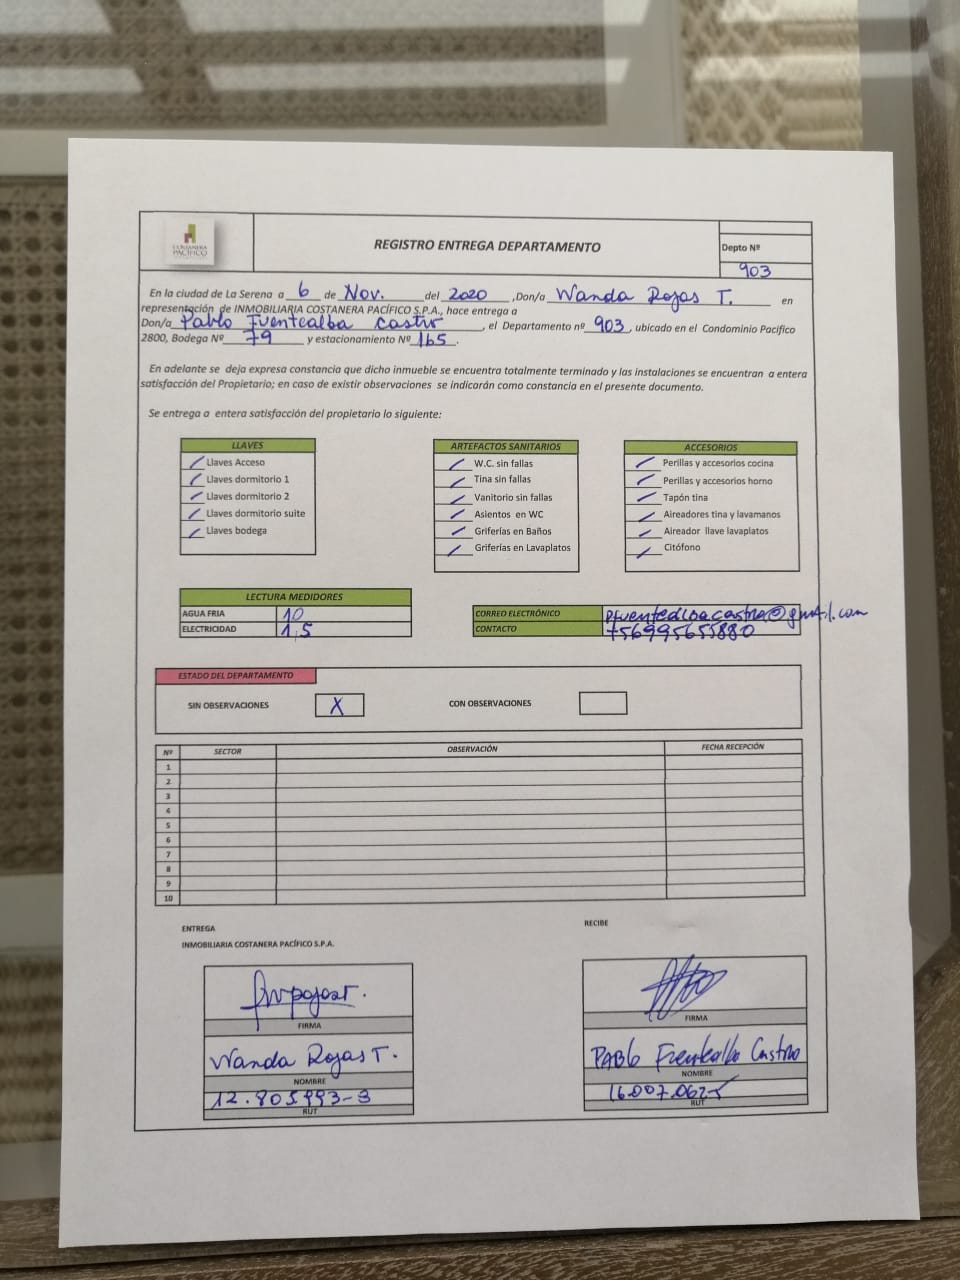 COSTANERA
PACÍFICO
REGISTRO ENTREGA DEPARTAMENTO
Depto Nº
903
En la ciudad de La Serena a 6 de Nov. del 2020 ,Don/a Wanda Rojas T. en
representación de INMOBILIARIA COSTANERA PACÍFICO S.P.A., hace entrega a
Don/a Pablo Fuentealba Castro , el Departamento nº 903 , ubicado en el Condominio Pacifico
2800, Bodega Nº 79 y estacionamiento Nº 165 .
En adelante se deja expresa constancia que dicho inmueble se encuentra totalmente terminado y las instalaciones se encuentran a entera
satisfacción del Propietario; en caso de existir observaciones se indicarán como constancia en el presente documento.
Se entrega a entera satisfacción del propietario lo siguiente:
LLAVES
Llaves Acceso
Llaves dormitorio 1
Llaves dormitorio 2
Llaves dormitorio suite
Llaves bodega
ARTEFACTOS SANITARIOS
W.C. sin fallas
Tina sin fallas
Vanitorio sin fallas
Asientos en WC
Griferías en Baños
Griferías en Lavaplatos
ACCESORIOS
Perillas y accesorios cocina
Perillas y accesorios horno
Tapón tina
Aireadores tina y lavamanos
Aireador llave lavaplatos
Citófono
LECTURA MEDIDORES
AGUA FRIA 10
ELECTRICIDAD 1,5
CORREO ELECTRÓNICO pfuentealbacastro@gmail.com
CONTACTO +56995655880
ESTADO DEL DEPARTAMENTO
SIN OBSERVACIONES X CON OBSERVACIONES
Nº SECTOR OBSERVACIÓN FECHA RECEPCIÓN
1
2
3
4
5
6
7
8
9
10
ENTREGA
INMOBILIARIA COSTANERA PACÍFICO S.P.A.
FIRMA
Wanda Rojas T.
NOMBRE
12.805.993-3
RUT
RECIBE
FIRMA
PABlo Fuentealba Castro
NOMBRE
16.007.062-5
RUT